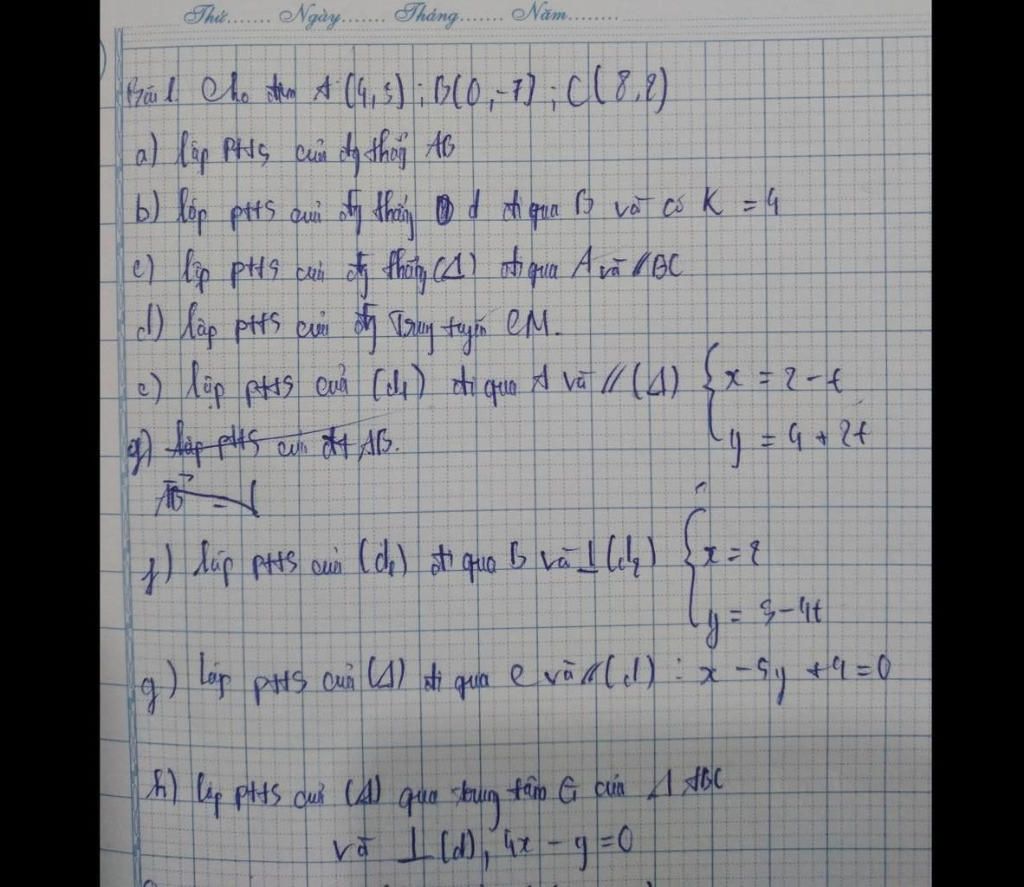 Thứ....... Ngày....... Tháng....... Năm........
Bài 1. Cho điểm A(4,3); B(0,-7); C(8,2)
a) lập PTTS của đg thẳg AB
b) lập PTTS của đg thẳng d đi qua B và có K = 4
c) lập PTTS của đg thẳng (Δ) đi qua A và // BC
d) lập PTTS của đg Trung tuyến CM.
e) lập PTTS của (d1) đi qua A và // (Δ) { x = 2 - t
y = 4 + 2t
g) lập PTTS của đt AB.
AB =
f) lập PTTS của (d1) đi qua B và ⊥ (d2) { x = 2
y = 3 - 4t
g) lập PTTS của (Δ) đi qua C và // (d) : x - 5y + 4 = 0
h) lập PTTS của (Δ) qua trung tâm G của Δ ABC
và ⊥ (d), 4x - y = 0